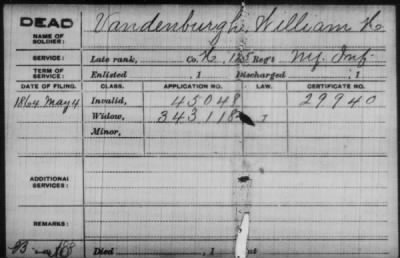 DEAD
NAME OF SOLDIER:
Vandenburgh, William H.
SERVICE:
Late rank, Co. H, 125 Reg't N.Y. Inf.
TERM OF SERVICE:
Enlisted , 1 Discharged , 1
DATE OF FILING. CLASS. APPLICATION NO. LAW. CERTIFICATE NO.
1864 May 4 Invalid, 45048 29940
Widow, 343118
Minor,
ADDITIONAL SERVICES:
REMARKS:
Died , 1 at